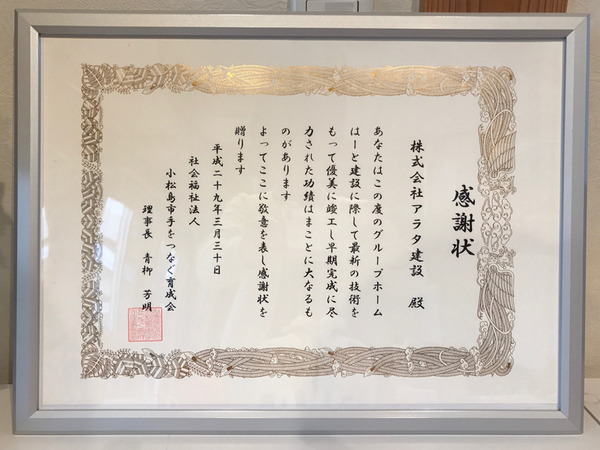 感謝状
株式会社アラタ建設 殿
あなたはこの度のグループホーム
はーと建設に際して最新の技術を
もって優美に竣工し早期完成に尽
力された功績はまことに大なるも
のがあります
よってここに敬意を表し感謝状を
贈ります
平成二十九年三月三十日
社会福祉法人
小松島市手をつなぐ育成会
理事長 青柳 芳明